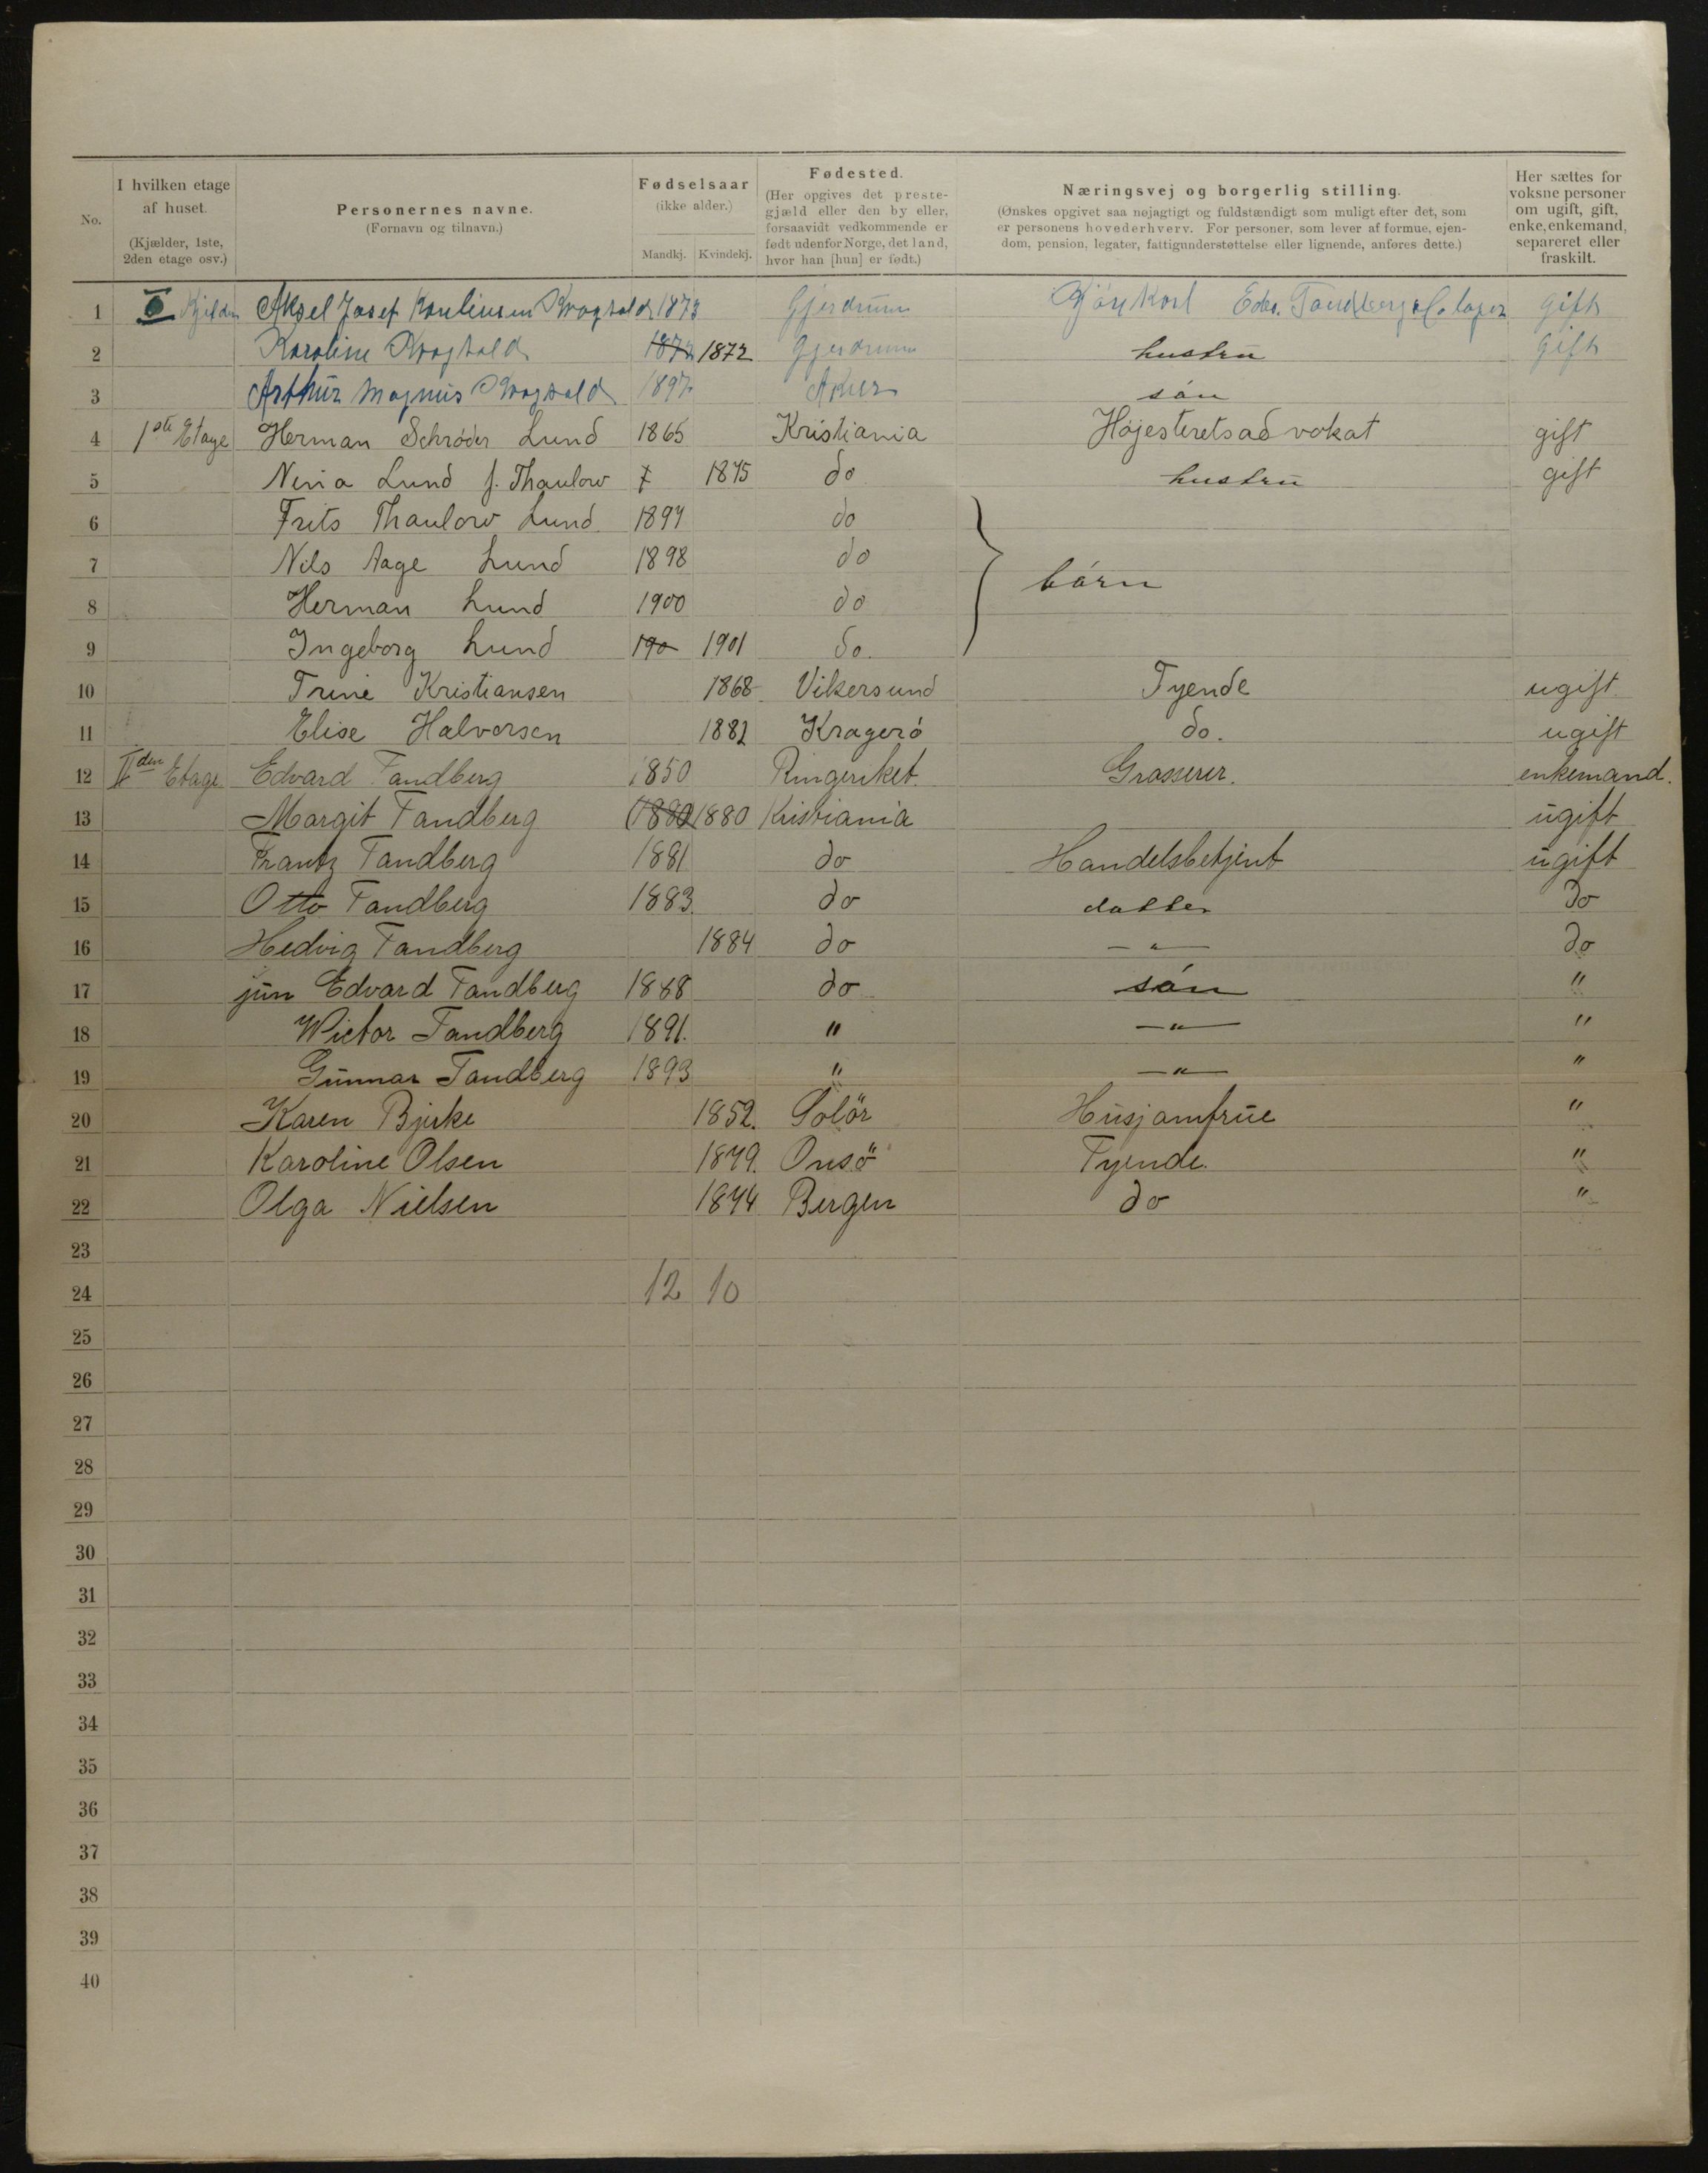 No.
I hvilken etage af huset. (Kjælder, 1ste, 2den etage osv.)
Personernes navne. (Fornavn og tilnavn.)
Fødselsaar (ikke alder.) Mandkj. Kvindekj.
Fødested. (Her opgives det prestegjæld eller den by eller, forsaavidt vedkommende er født udenfor Norge, det land, hvor han [hun] er født.)
Næringsvej og borgerlig stilling. (Ønskes opgivet saa nøjagtigt og fuldstændigt som muligt efter det, som er personens hovederhverv. For personer, som lever af formue, ejendom, pension, legater, fattigunderstøttelse eller lignende, anføres dette.)
Her sættes for voksne personer om ugift, gift, enke, enkemand, separeret eller fraskilt.
1 Aksel Josef 1873 Gjerdrum Tandberg gift
2 Karoline 1872 1872 Gjerdrum hustru gift
3 Arthur Magnus 1897 Aker søn
4 1ste Etage Herman Schrøder Lund 1865 Kristiania Højesteretsadvokat gift
5 Nina Lund f. Thaulow 1875 do hustru gift
6 Frits Thaulow Lund 1897 do
7 Nils Aage Lund 1898 do
børn
8 Herman Lund 1900 do
9 Ingeborg Lund 190 1901 do.
10 Trine Kristiansen 1868 Vikersund Tyende ugift
11 Elise Halvorsen 1882 Kragerø do. ugift
12 IIden Etage Edvard Tandberg 1850 Ringeriket. Grosserer. enkemand.
13 Margit Tandberg 1880 1880 Kristiania ugift
14 Frantz Tandberg 1881 do Handelsbetjent ugift
15 Otto Tandberg 1883. do datter do
16 Hedvig Tandberg 1884 do — " — do
17 jun Edvard Tandberg 1888 do søn "
18 Wictor Tandberg 1891. " — " — "
19 Gunnar Tandberg 1893 " — " — "
20 Karen Bjerke 1852. Solör Husjomfrue "
21 Karoline Olsen 1879. Onsö Tyende. "
22 Olga Nielsen 1874 Bergen do "
23
24 12 10
25
26
27
28
29
30
31
32
33
34
35
36
37
38
39
40